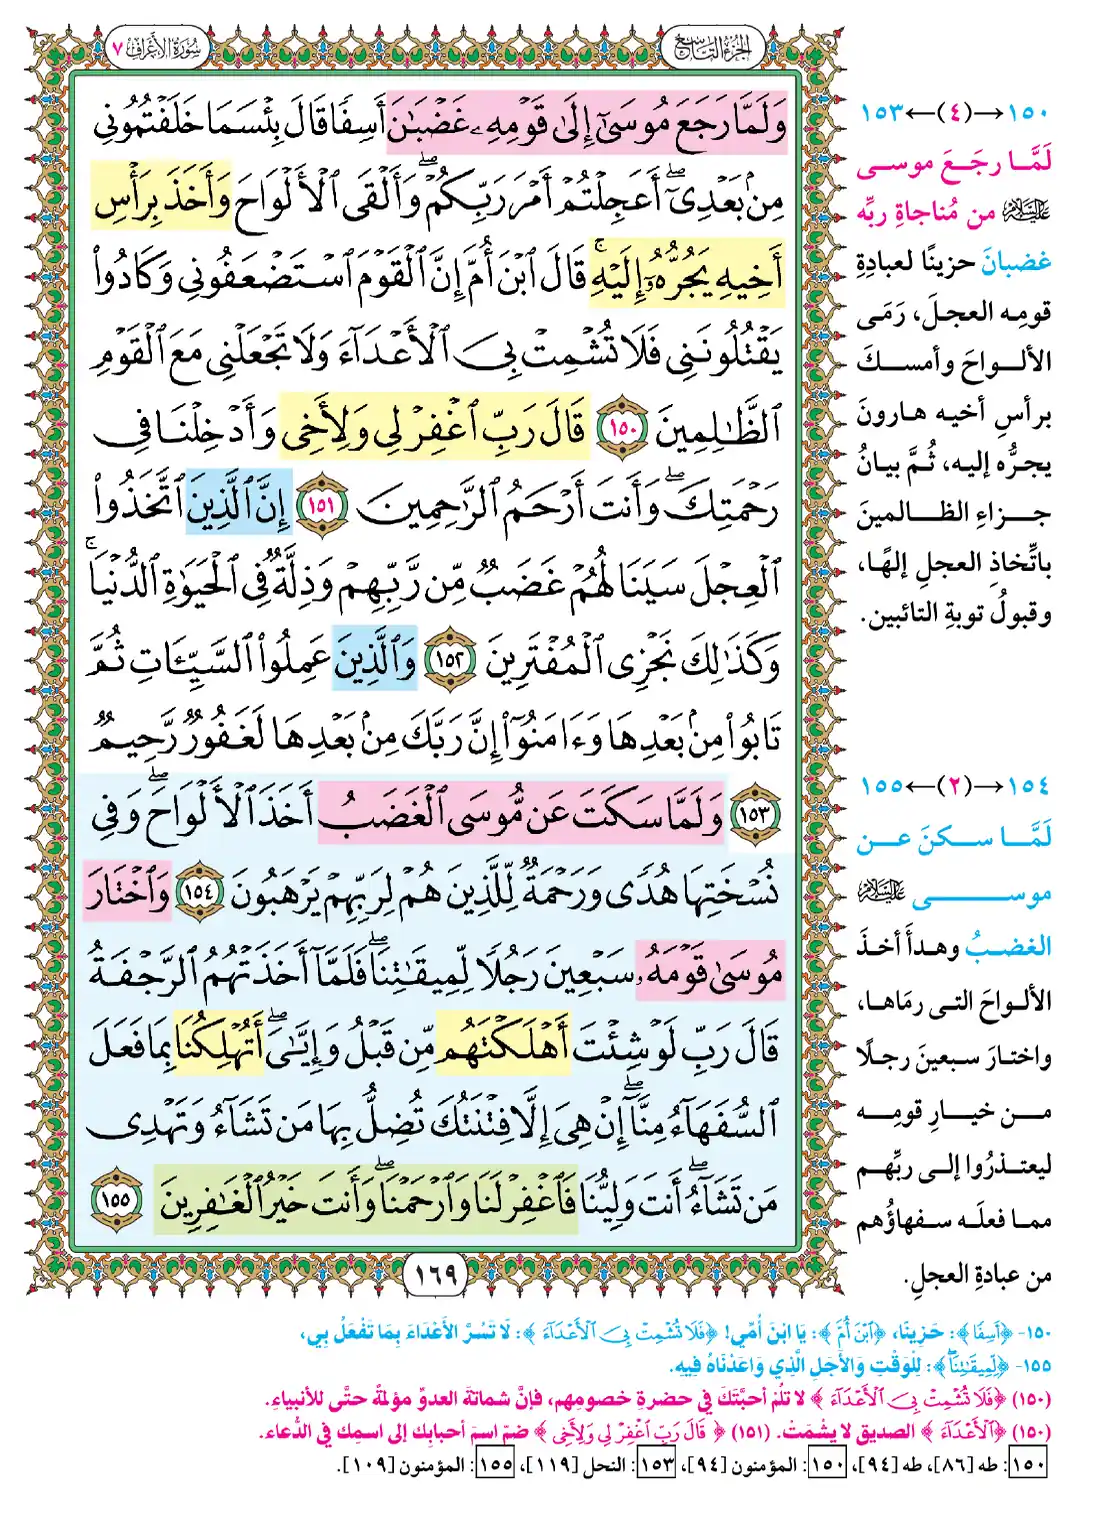 الجزء التاسع
سورة الأعراف ٧
وَلَمَّا رَجَعَ مُوسَىٰٓ إِلَىٰ قَوْمِهِۦ غَضْبَٰنَ أَسِفًا قَالَ بِئْسَمَا خَلَفْتُمُونِى
مِنۢ بَعْدِىٓ ۖ أَعَجِلْتُمْ أَمْرَ رَبِّكُمْ ۖ وَأَلْقَى ٱلْأَلْوَاحَ وَأَخَذَ بِرَأْسِ
أَخِيهِ يَجُرُّهُۥٓ إِلَيْهِ ۚ قَالَ ٱبْنَ أُمَّ إِنَّ ٱلْقَوْمَ ٱسْتَضْعَفُونِى وَكَادُوا۟
يَقْتُلُونَنِى فَلَا تُشْمِتْ بِىَ ٱلْأَعْدَآءَ وَلَا تَجْعَلْنِى مَعَ ٱلْقَوْمِ
ٱلظَّٰلِمِينَ ١٥٠ قَالَ رَبِّ ٱغْفِرْ لِى وَلِأَخِى وَأَدْخِلْنَا فِى
رَحْمَتِكَ ۖ وَأَنتَ أَرْحَمُ ٱلرَّٰحِمِينَ ١٥١ إِنَّ ٱلَّذِينَ ٱتَّخَذُوا۟
ٱلْعِجْلَ سَيَنَالُهُمْ غَضَبٌ مِّن رَّبِّهِمْ وَذِلَّةٌ فِى ٱلْحَيَوٰةِ ٱلدُّنْيَا ۚ
وَكَذَٰلِكَ نَجْزِى ٱلْمُفْتَرِينَ ١٥٢ وَٱلَّذِينَ عَمِلُوا۟ ٱلسَّيِّـَٔاتِ ثُمَّ
تَابُوا۟ مِنۢ بَعْدِهَا وَءَامَنُوٓا۟ إِنَّ رَبَّكَ مِنۢ بَعْدِهَا لَغَفُورٌ رَّحِيمٌ
١٥٣ وَلَمَّا سَكَتَ عَن مُّوسَى ٱلْغَضَبُ أَخَذَ ٱلْأَلْوَاحَ ۖ وَفِى
نُسْخَتِهَا هُدًى وَرَحْمَةٌ لِّلَّذِينَ هُمْ لِرَبِّهِمْ يَرْهَبُونَ ١٥٤ وَٱخْتَارَ
مُوسَىٰ قَوْمَهُۥ سَبْعِينَ رَجُلًا لِّمِيقَٰتِنَا ۖ فَلَمَّآ أَخَذَتْهُمُ ٱلرَّجْفَةُ
قَالَ رَبِّ لَوْ شِئْتَ أَهْلَكْتَهُم مِّن قَبْلُ وَإِيَّٰىَ ۖ أَتُهْلِكُنَا بِمَا فَعَلَ
ٱلسُّفَهَآءُ مِنَّآ ۖ إِنْ هِىَ إِلَّا فِتْنَتُكَ تُضِلُّ بِهَا مَن تَشَآءُ وَتَهْدِى
مَن تَشَآءُ ۖ أَنتَ وَلِيُّنَا فَٱغْفِرْ لَنَا وَٱرْحَمْنَا ۖ وَأَنتَ خَيْرُ ٱلْغَٰفِرِينَ ١٥٥
١٦٩
١٥٠→(٤)←١٥٣
لَمَّا رجَعَ موسى
عليه السلام من مُناجاةِ ربِّه
غضبانَ حزينًا لعبادةِ
قومِه العجلَ، رَمَى
الألواحَ وأمسكَ
برأسِ أخيه هارونَ
يجرُّه إليه، ثُمَّ بيانُ
جزاءِ الظالمينَ
باتِّخاذِ العجلِ إلهًا،
وقبولُ توبةِ التائبين.
١٥٤→(٢)←١٥٥
لَمَّا سكنَ عن
موسى عليه السلام
الغضبُ وهدأَ أخذَ
الألواحَ التى رمَاها،
واختارَ سبعينَ رجلًا
من خيارِ قومِه
ليعتذرُوا إلى ربِّهم
مما فعلَه سفهاؤُهم
من عبادةِ العجلِ.
١٥٠- ﴿أَسِفًا﴾: حَزِينًا، ﴿ٱبْنَ أُمَّ﴾: يَا ابْنَ أُمِّي! ﴿فَلَا تُشْمِتْ بِىَ ٱلْأَعْدَآءَ﴾: لَا تَسُرَّ الأَعْدَاءَ بِمَا تَفْعَلُ بِي،
١٥٥- ﴿لِّمِيقَٰتِنَا﴾: لِلْوَقْتِ وَالأَجَلِ الَّذِي وَاعَدْنَاهُ فِيهِ.
(١٥٠) ﴿فَلَا تُشْمِتْ بِىَ ٱلْأَعْدَآءَ﴾ لا تلُمْ أحبَّتَكَ في حضرةِ خصومِهم، فإنَّ شماتةَ العدوِّ مؤلمةٌ حتَّى للأنبياءِ.
(١٥٠) ﴿ٱلْأَعْدَآءَ﴾ الصديق لا يشْمَتْ. (١٥١) ﴿قَالَ رَبِّ ٱغْفِرْ لِى وَلِأَخِى﴾ ضمّ اسمَ أحبابِك إلى اسمِك في الدُّعاء.
١٥٠: طه [٨٦]، طه [٩٤]، ١٥٠: المؤمنون [٩٤]، ١٥٣: النحل [١١٩]، ١٥٥: المؤمنون [١٠٩].